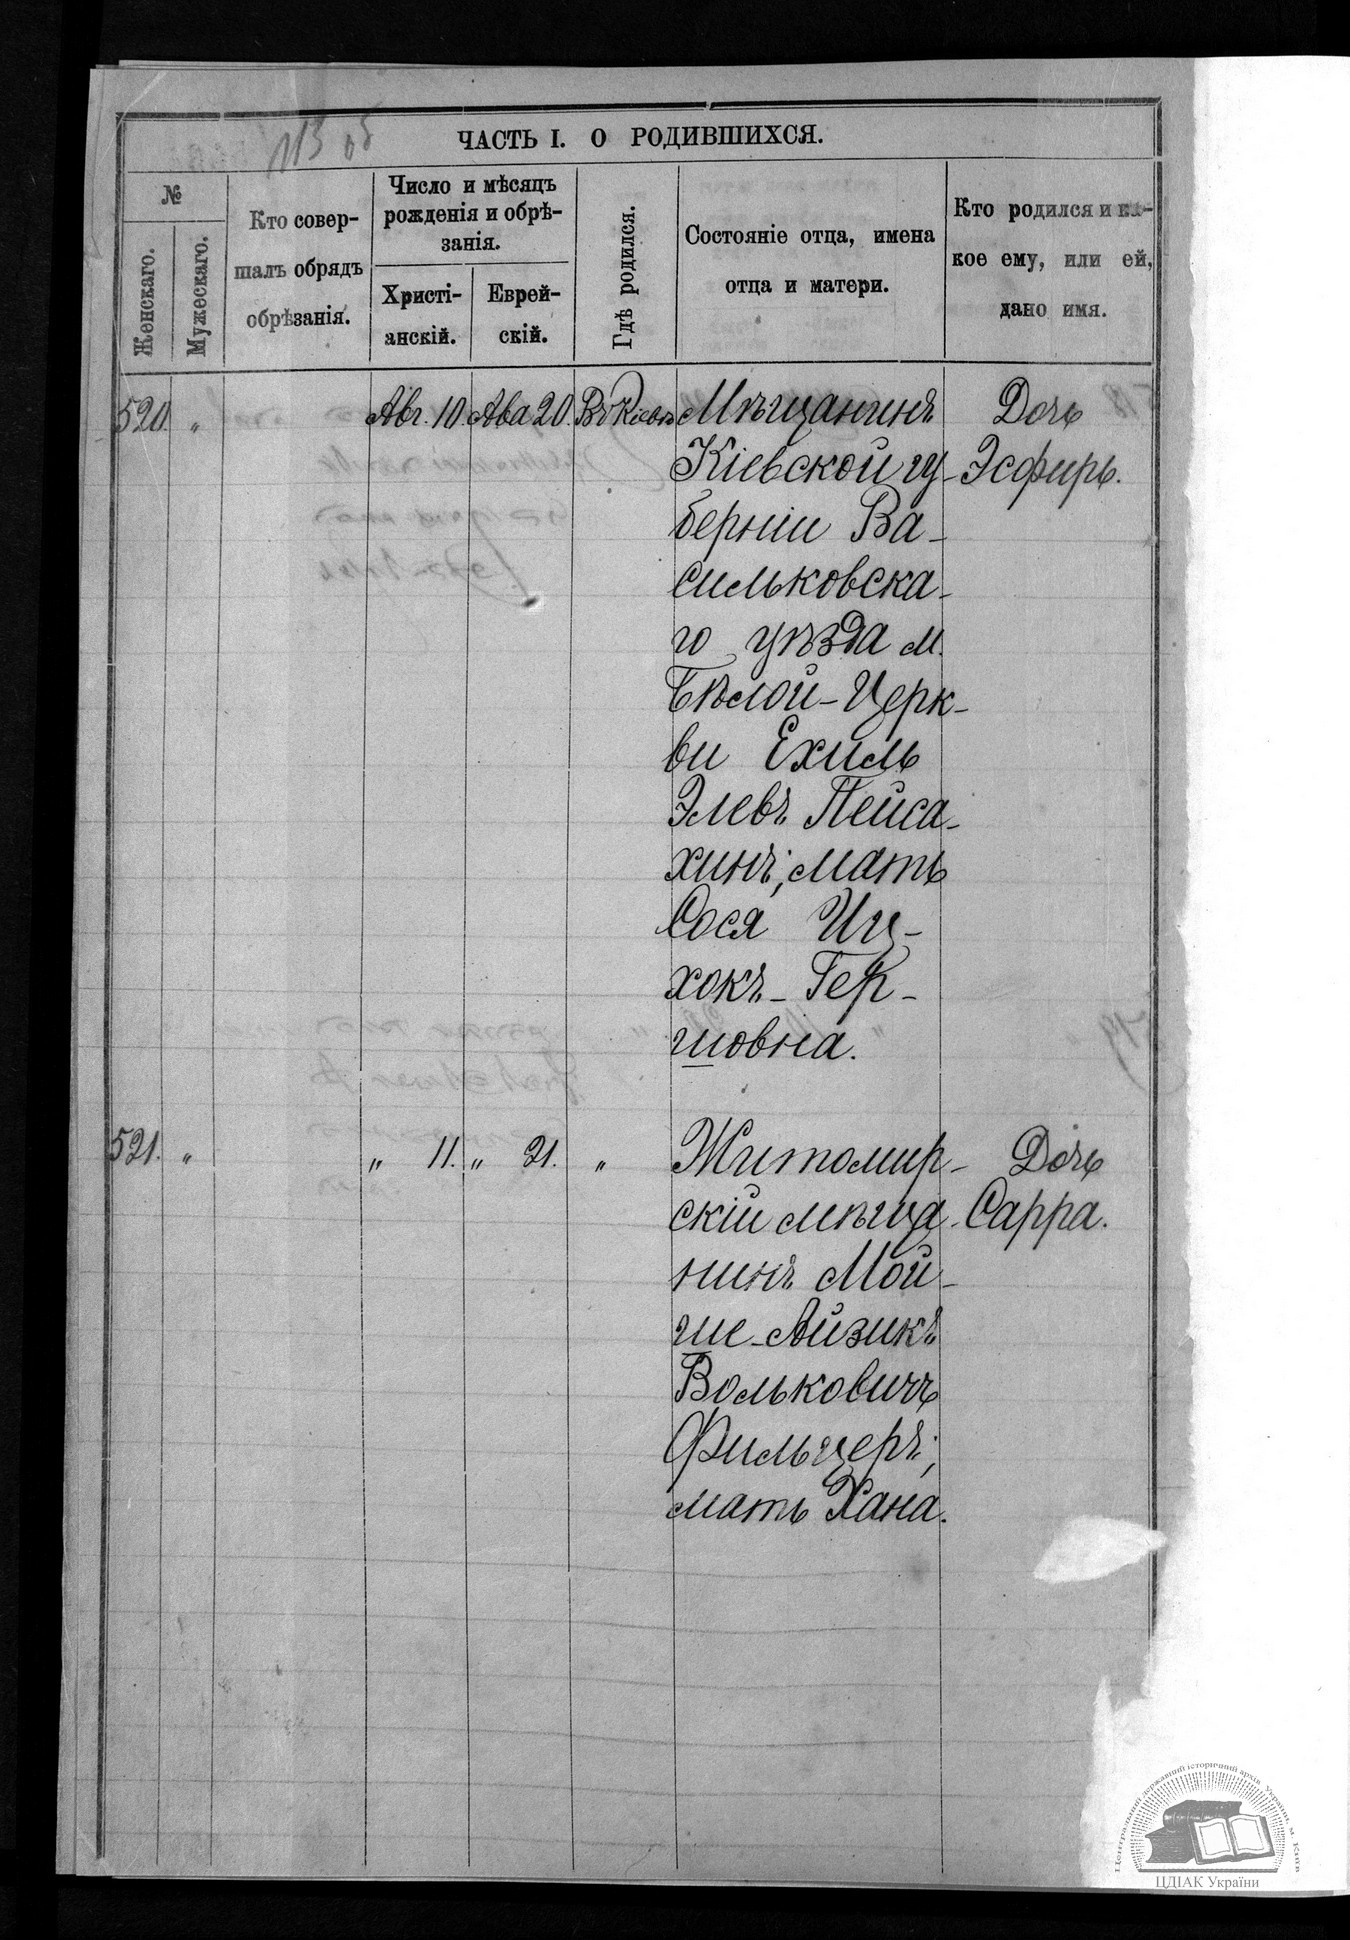 113 об
ЧАСТЬ I. О РОДИВШИХСЯ.
№
Женскаго.
Мужескаго.
Кто совер-
шалъ обрядъ
обрѣзанія.
Число и мѣсяцъ
рожденія и обрѣ-
занія.
Христі-
анскій.
Еврей-
скій.
Гдѣ родился.
Состояніе отца, имена
отца и матери.
Кто родился и ка-
кое ему, или ей,
дано имя.
520. „ Авг. 10. Ава 20. Въ Кіевѣ Мѣщанинъ Дочь
Кіевской гу- Эсфирь.
берніи Ва-
сильковска-
го уѣзда м.
Бѣлой-Церк-
ви Ехиль
Элевъ Пейса-
хинъ, мать
Сося Иц-
хокъ-Гер-
шовна.
521. „ „ 11. „ 21. „ Житомир- Дочь
скій мѣща- Сарра.
нинъ Мой-
ше-Айзикъ
Вольковичъ
Фильцеръ;
мать Хана.
Центральний державний історичний архів України, м. Київ
ЦДІАК України